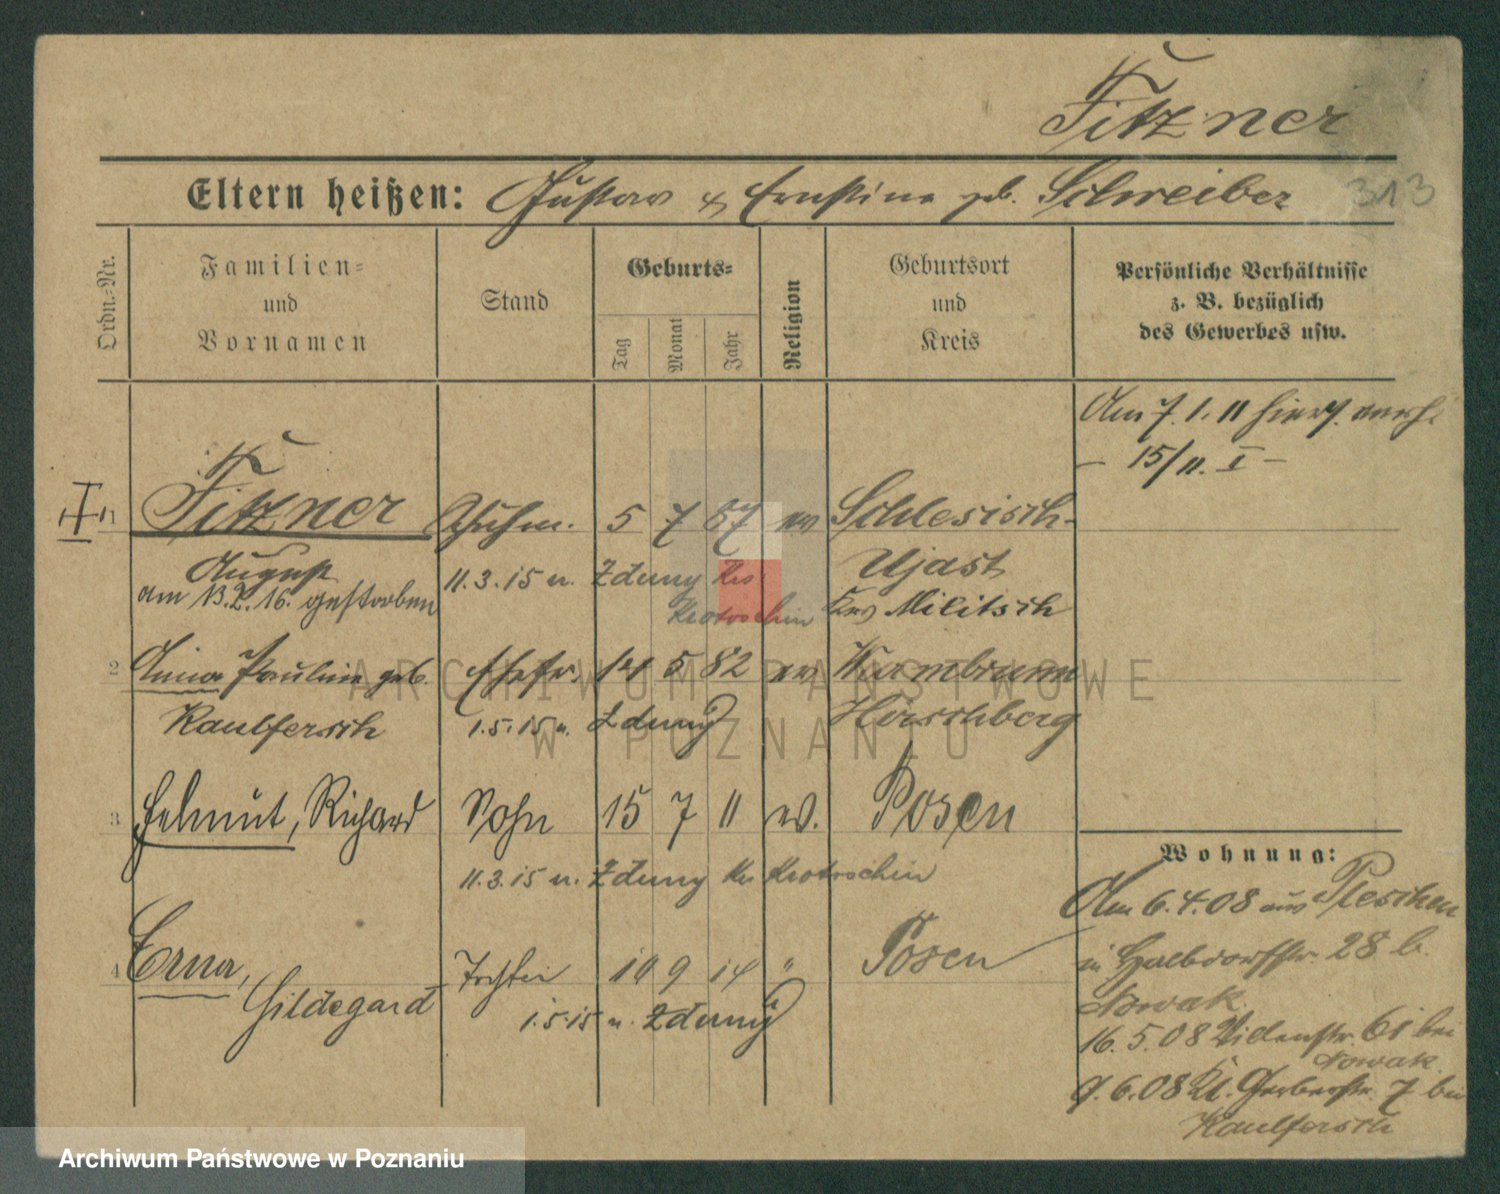 Fitzner
Eltern heißen: Gustav & Ernstine geb. Schreiber
313
Ordn.-Nr.
Familien-
und
Vornamen
Stand
Geburts-
Tag
Monat
Jahr
Religion
Geburtsort
und
Kreis
Persönliche Verhältnisse
z. B. bezüglich
des Gewerbes usw.
Am 7.1.11 hiers. verh.
- 15/11. I -
1 Fitzner Schuhm. 5 7 87 ev Schlesisch-
August 11.3.15 n. Zduny Krs Ujast
am 13.2.16. gestorben Krotoschin Krs Militsch
2 Anna Pauline geb. Ehefr. 14 5 82 ev Warmbrunn
Kaulfersch 1.5.15 n. Zduny Hirschberg
3 Helmut, Richard Sohn 15 7 11 ev. Posen
11.3.15 n. Zduny Krs Krotoschin
4 Erna, Tochter 10 9 14 " Posen
Hildegard 1.5.15 n. Zduny
Wohnung:
Am 6.4.08 aus Pleschen
in Halbdorfstr. 28 b.
Nowak
16.5.08 61 bei
Nowak.
9.6.08 Kl. Gerberstr. 7 bei
Kaulfersch
ARCHIWUM PAŃSTWOWE
W POZNANIU
Archiwum Państwowe w Poznaniu